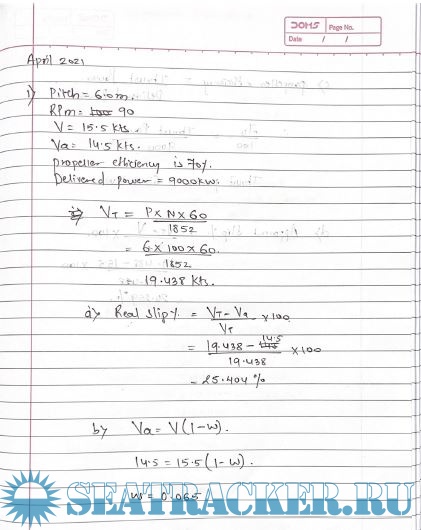 DOMS Page No.
Date / /
April 2021
1) Pitch = 6.0m
RPM = 90
V = 15.5 kts.
Va = 14.5 kts.
propeller efficiency is 70%.
Delivered power = 9000kw.
VT = P x N x 60
1852
= 6 x 100 x 60.
1852
19.438 kts.
a) Real slip % = VT - Va x100
VT
= 19.438 - 14.5 x100
19.438
= 25.404 %
b) Va = V(1-w).
14.5 = 15.5(1-w).
w = 0.065
SEATRACKER.RU